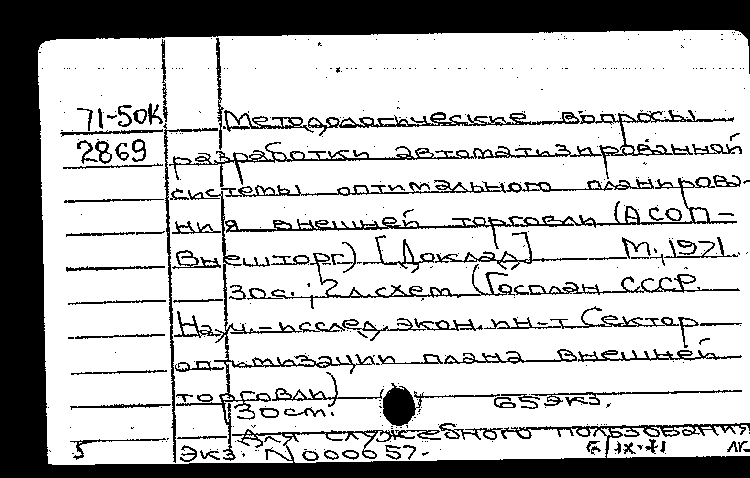 71-50К Методологические вопросы
2869 разработки автоматизированной
системы оптимального планирова-
ния внешней торговли (АСОП-
Внешторг). [Доклад] М., 1971
30с.; 2 л. схем. (Госплан СССР.
Науч.-исслед. экон. ин-т Сектор
оптимизации плана внешней
торговли)
30см. 65экз.
Для служебного пользования
5 Экз. N 000657.